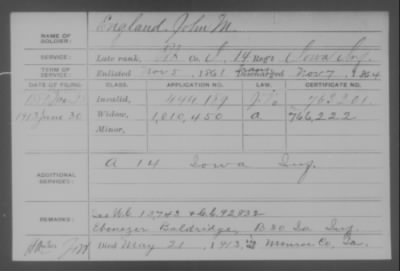 NAME OF SOLDIER: England, John M.
SERVICE: Late rank, Co. I, 14 Reg't Iowa Inf.
TERM OF SERVICE: Enlisted Nov 5, 1861 Discharged Nov 7, 1864
DATE OF FILING. CLASS. APPLICATION NO. LAW. CERTIFICATE NO.
Invalid, 763201
1913 June 30 Widow, 1,010,450 a 766,222
Minor,
A 14 Iowa Inf.
ADDITIONAL SERVICE:
REMARKS: See W.C. 13743 & C.C. 92832
Ebenezer Baldridge, B 30 Ia Inf.
Died May 21, 1913, Monroe Co, Ia.